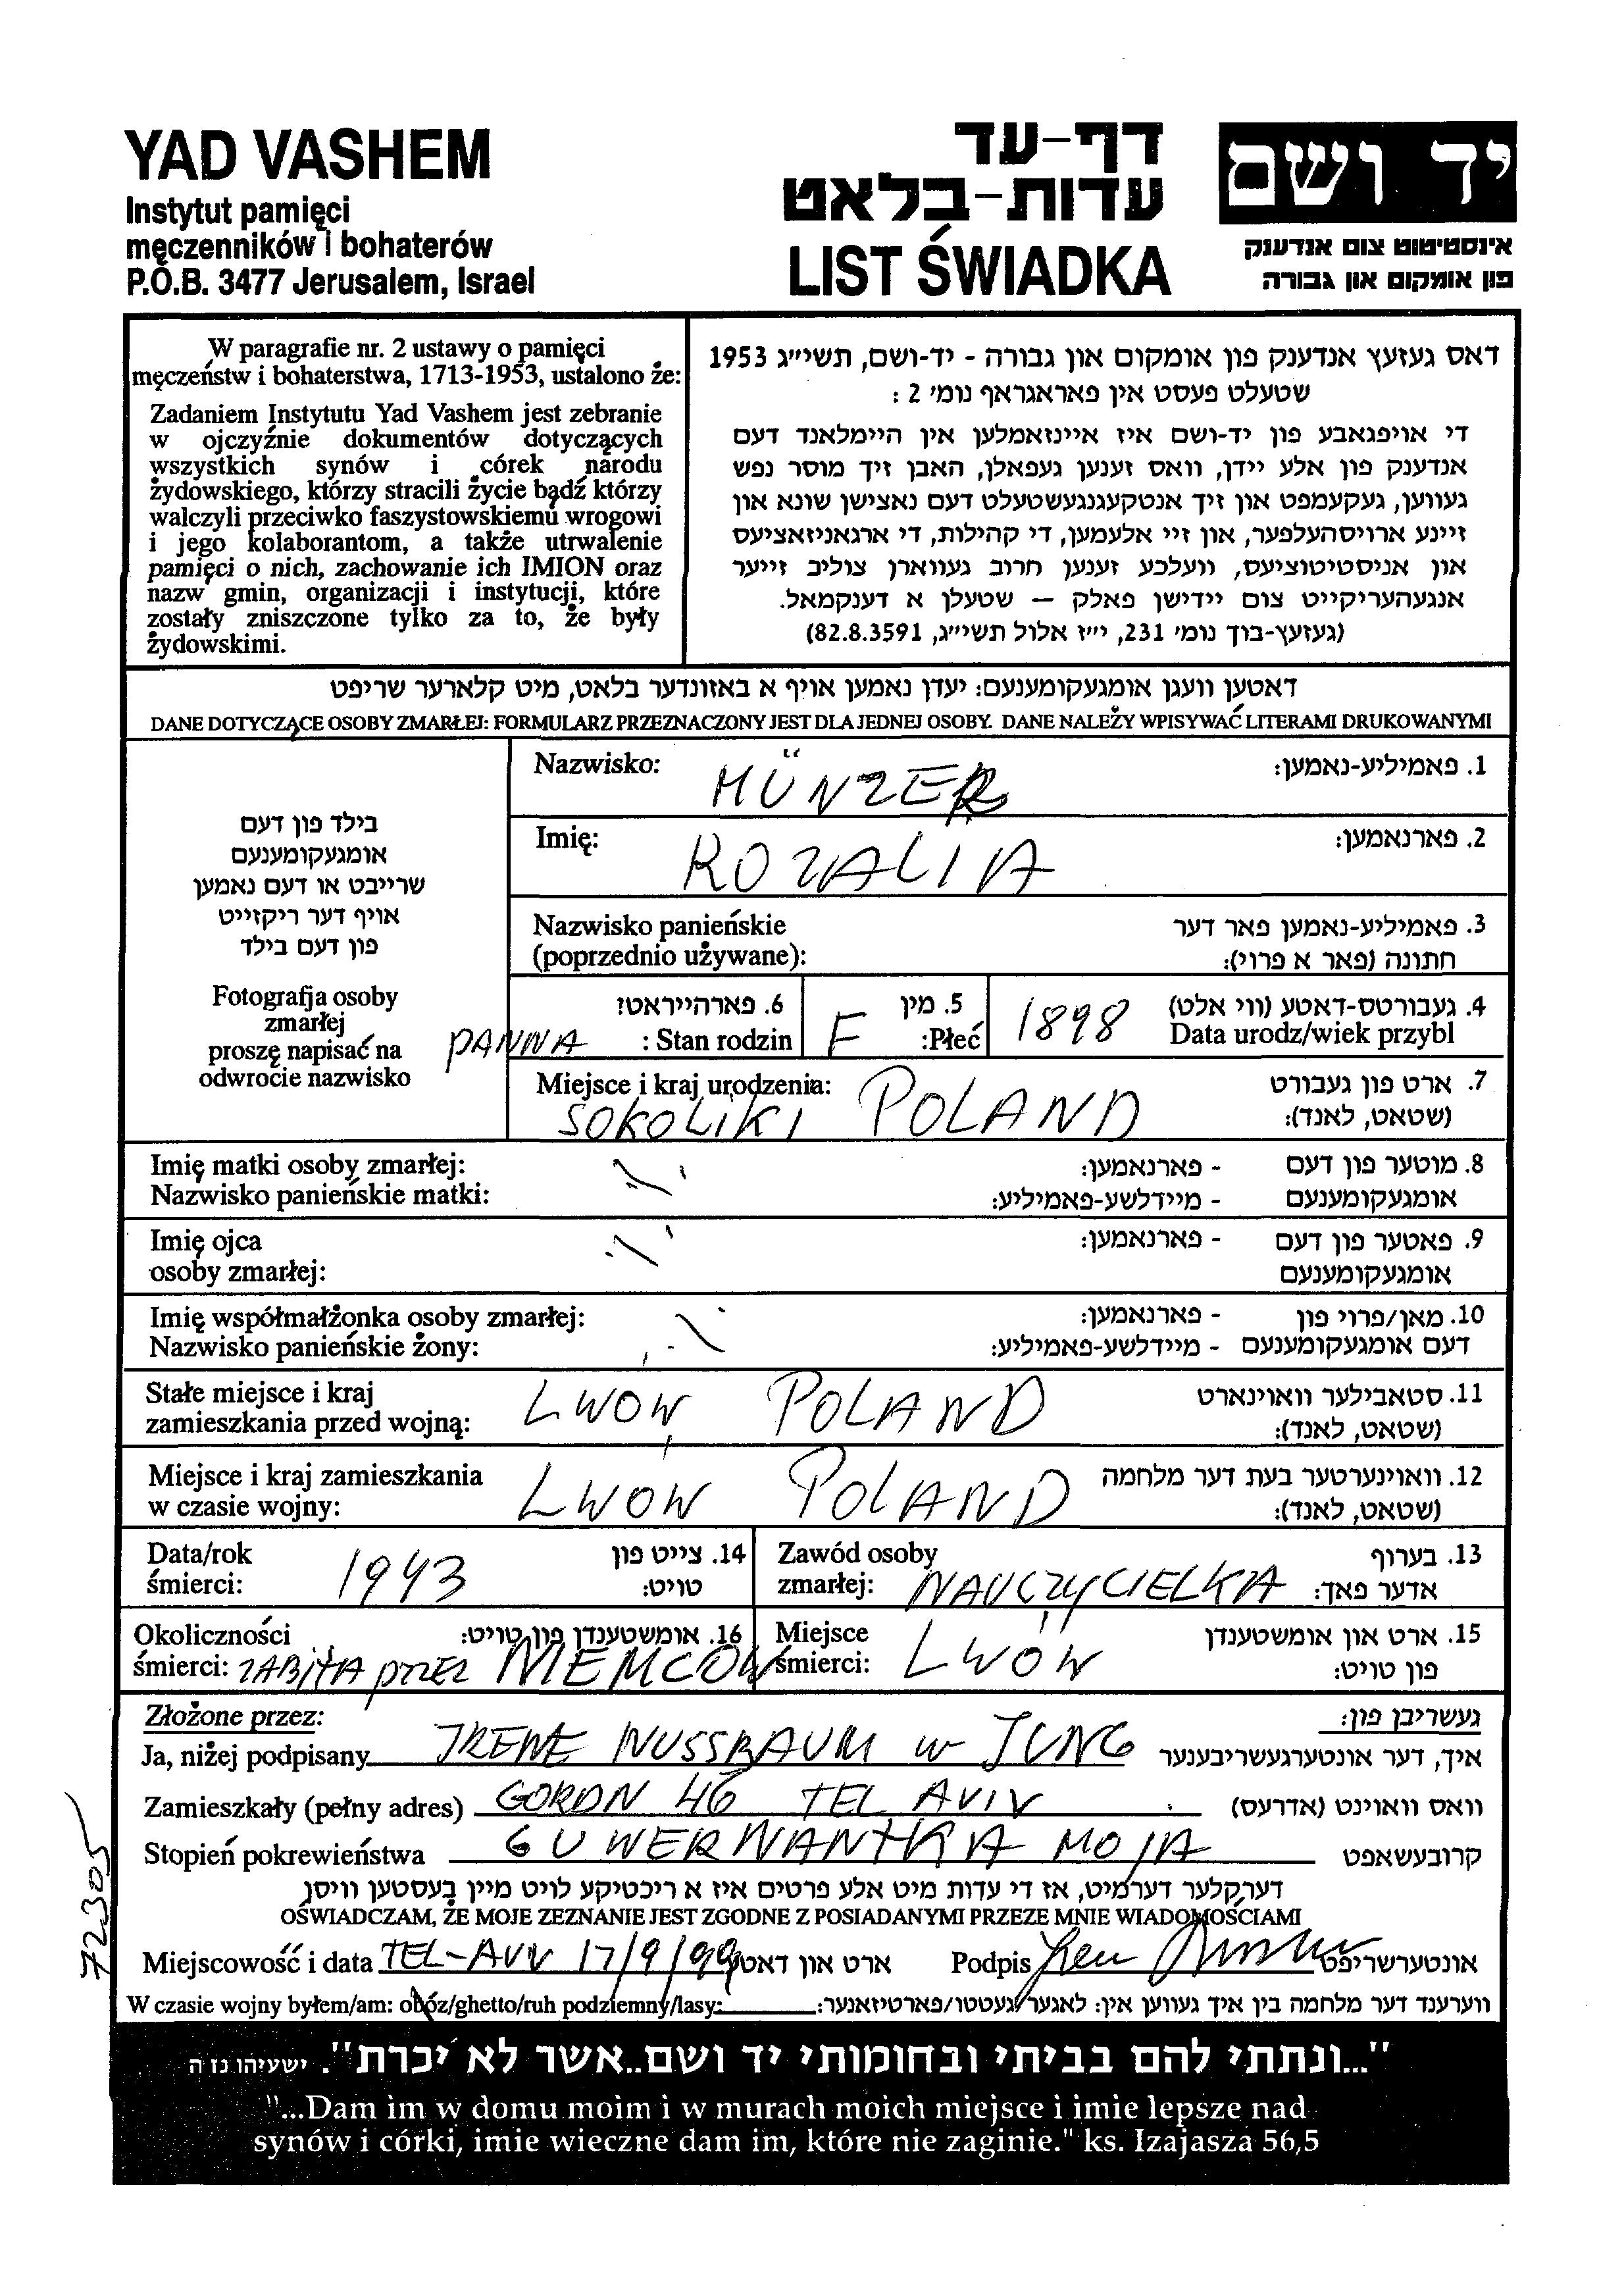 YAD VASHEM
Instytut pamięci
męczenników i bohaterów
P.O.B. 3477 Jerusalem, Israel
דף-עד
עדות-בלאט
LIST ŚWIADKA
יד ושם
אינסטיטוט צום אנדענק
פון אומקום און גבורה
W paragrafie nr. 2 ustawy o pamięci
męczeństw i bohaterstwa, 1713-1953, ustalono że:
Zadaniem Instytutu Yad Vashem jest zebranie
w ojczyźnie dokumentów dotyczących
wszystkich synów i córek narodu
żydowskiego, którzy stracili życie bądź którzy
walczyli przeciwko faszystowskiemu wrogowi
i jego kolaborantom, a także utrwalenie
pamięci o nich, zachowanie ich IMION oraz
nazw gmin, organizacji i instytucji, które
zostały zniszczone tylko za to, że były
żydowskimi.
דאס געזעץ אנדענק פון אומקום און גבורה - יד-ושם, תשי״ג 1953
שטעלט פעסט אין פאראגראף נומ׳ 2 :
די אויפגאבע פון יד-ושם איז איינזאמלען אין היימלאנד דעם
אנדענק פון אלע יידן, וואס זענען געפאלן, האבן זיך מוסר נפש
געווען, געקעמפט און זיך אנטקעגנגעשטעלט דעם נאצישן שונא און
זיינע ארויסהעלפער, און זיי אלעמען, די קהילות, די ארגאניזאציעס
און אניסטיטוציעס, וועלכע זענען חרוב געווארן צוליב זייער
אנגעהעריקייט צום יידישן פאלק – שטעלן א דענקמאל.
(געזעץ-בוך נומ׳ 231, י״ז אלול תשי״ג, 82.8.3591)
דאטען וועגן אומגעקומענעם: יעדן נאמען אויף א באזונדער בלאט, מיט קלארער שריפט
DANE DOTYCZĄCE OSOBY ZMARŁEJ: FORMULARZ PRZEZNACZONY JEST DLA JEDNEJ OSOBY. DANE NALEŻY WPISYWAĆ LITERAMI DRUKOWANYMI
בילד פון דעם
אומגעקומענעם
שרייבט או דעם נאמען
אויף דער ריקזייט
פון דעם בילד
Fotografja osoby
zmarłej
proszę napisać na
odwrocie nazwisko
Nazwisko: MÜNZER 1. פאמיליע-נאמען:
Imię: ROZALIA 2. פארנאמען:
Nazwisko panieńskie 3. פאמיליע-נאמען פאר דער
(poprzednio używane): חתונה (פאר א פרוי):
6. פארהייראט? 5. מין 4. געבורטס-דאטע (ווי אלט)
PANNA : Stan rodzin F :Płeć 1898 Data urodz/wiek przybl
Miejsce i kraj urodzenia: 7. ארט פון געבורט
SOKOLIKI POLAND (שטאט, לאנד):
Imię matki osoby zmarłej: - פארנאמען: 8. מוטער פון דעם
Nazwisko panieńskie matki: - מיידלשע-פאמיליע: אומגעקומענעם
Imię ojca - פארנאמען: 9. פאטער פון דעם
osoby zmarłej: אומגעקומענעם
Imię współmałżonka osoby zmarłej: - פארנאמען: 10. מאן/פרוי פון
Nazwisko panieńskie żony: - מיידלשע-פאמיליע: דעם אומגעקומענעם
Stałe miejsce i kraj 11. סטאבילער וואוינארט
zamieszkania przed wojną: LWÓW POLAND (שטאט, לאנד):
Miejsce i kraj zamieszkania 12. וואוינערטער בעת דער מלחמה
w czasie wojny: LWOW POLAND (שטאט, לאנד):
Data/rok 14. צייט פון
śmierci: 1943 טויט:
Zawód osoby 13. בערוף
zmarłej: NAUCZYCIELKA אדער פאך:
Okoliczności 16. אומשטענדן פון טויט:
śmierci: ZABITA przez NIEMCÓW
Miejsce 15. ארט און אומשטענדן
śmierci: LWÓW פון טויט:
Złożone przez: געשריבן פון:
Ja, niżej podpisany IRENE NUSSBAUM w JUNG איך, דער אונטערגעשריבענער
Zamieszkały (pełny adres) GORDN 46 TEL AVIV וואס וואוינט (אדרעס)
Stopień pokrewieństwa GUWERNANTKA MOJA קרובעשאפט
דערקלער דערמיט, אז די עדות מיט אלע פרטים איז א ריכטיקע לויט מיין בעסטען וויסן
OŚWIADCZAM, ŻE MOJE ZEZNANIE JEST ZGODNE Z POSIADANYMI PRZEZE MNIE WIADOMOŚCIAMI
Miejscowość i data TEL-AVIV 17/9/99 ארט און דאטע Podpis אונטערשריפט
W czasie wojny byłem/am: obóz/ghetto/ruh podziemny/lasy: ווערענד דער מלחמה בין איך געווען אין: לאגער/געטטו/פארטיזאנער:
72305
"...ונתתי להם בביתי ובחומותי יד ושם..אשר לא יכרת". ישעיהו נז ה
"...Dam im w domu moim i w murach moich miejsce i imie lepsze nad
synów i córki, imie wieczne dam im, które nie zaginie." ks. Izajasza 56,5